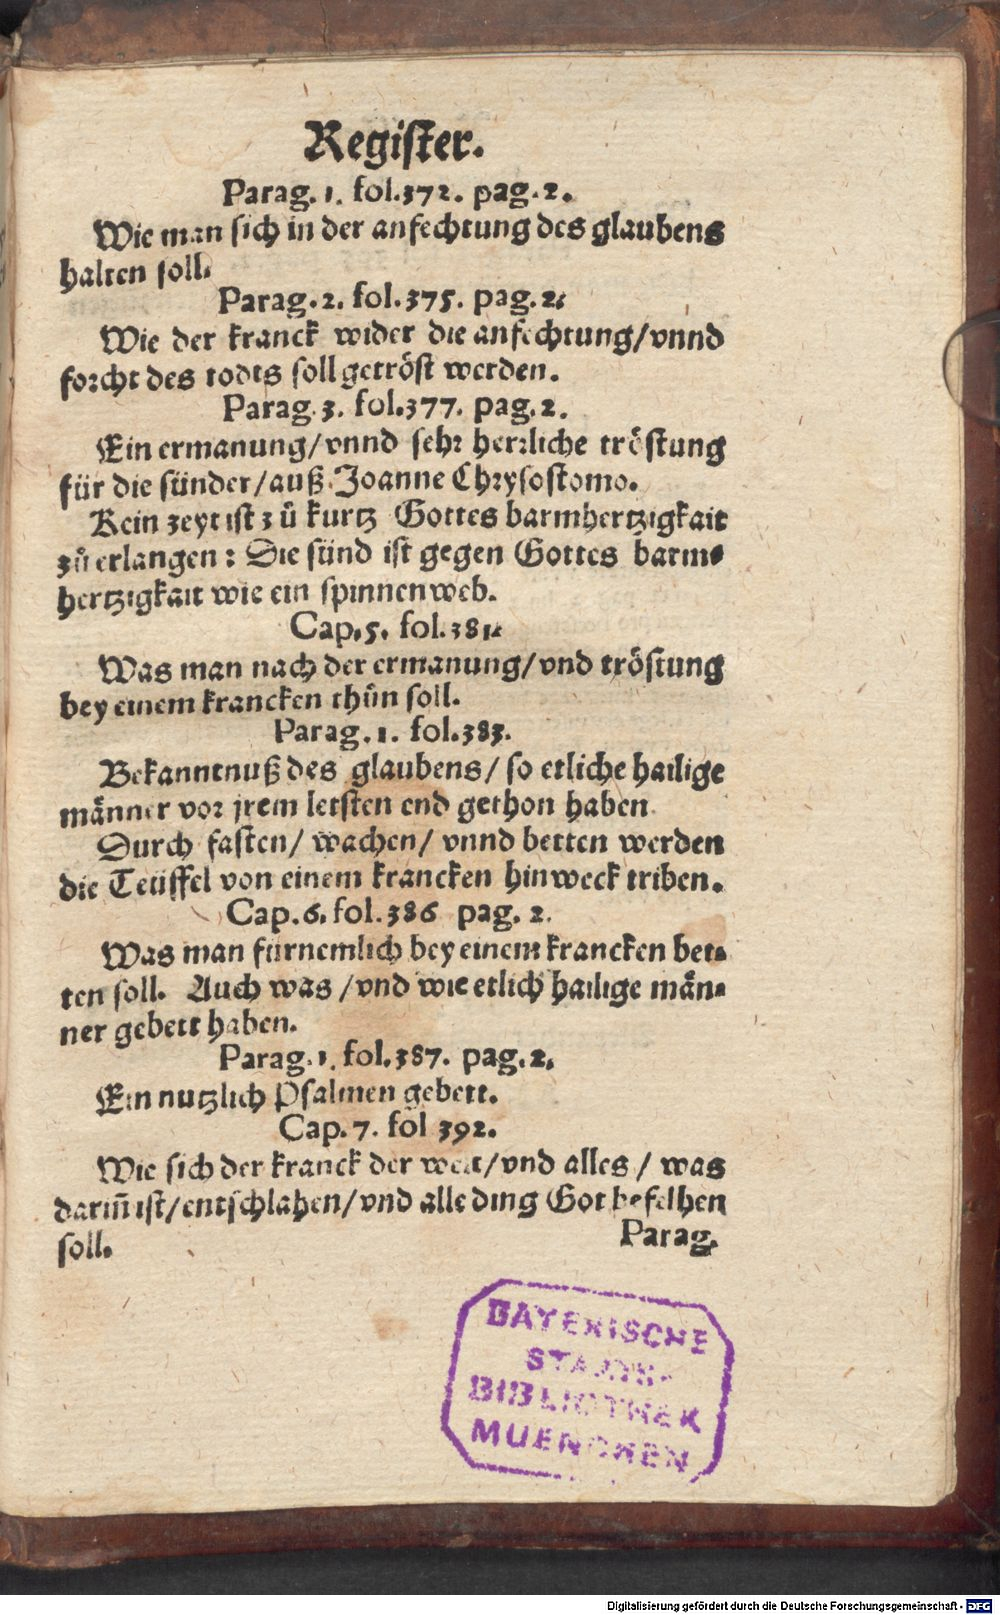 Register.
Parag. 1. fol. 372. pag. 2.
Wie man sich in der anfechtung des glaubens
halten soll.
Parag. 2. fol. 375. pag. 2.
Wie der kranck wider die anfechtung/vnnd
forcht des todts soll getröst werden.
Parag. 3. fol. 377. pag. 2.
Ein ermanung/vnnd sehr herrliche tröstung
für die sünder/auß Joanne Chrysostomo.
Kein zeyt ist zů kurtz Gottes barmhertzigkait
zů erlangen: Die sünd ist gegen Gottes barm⸗
hertzigkait wie ein spinnenweb.
Cap. 5. fol. 381.
Was man nach der ermanung/vnd tröstung
bey einem krancken thůn soll.
Parag. 1. fol. 383.
Bekanntnuß des glaubens/ so etliche hailige
männer vor jrem letsten end gethon haben.
Durch fasten/ wachen/ vnnd betten werden
die Teüffel von einem krancken hinweck triben.
Cap. 6. fol. 386 pag. 2.
Was man fürnemlich bey einem krancken bet⸗
ten soll. Auch was /vnd wie etlich hailige män⸗
ner gebett haben.
Parag. 1. fol. 387. pag. 2.
Ein nutzlich Psalmen gebett.
Cap. 7. fol 392.
Wie sich der kranck der welt/vnd alles/ was
dariñ ist/entschlahen/vnd alle ding Got befelhen
soll.
Parag.
BAYERISCHE
STAATS-
BIBLIOTHEK
MUENCHEN
Digitalisierung gefördert durch die Deutsche Forschungsgemeinschaft - DFG